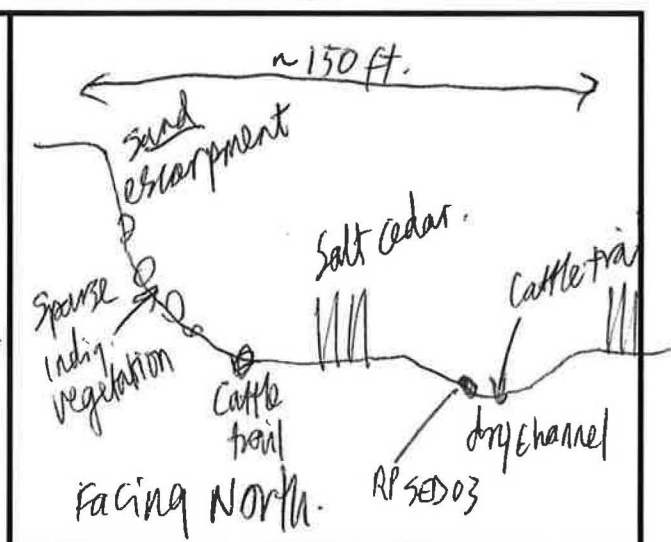 ~150 ft.
Sand
escarpment
Salt cedar.
Cattle trai
Sparse
indig.
vegetation
Cattle
trail
dry channel
RPSED03
Facing North.